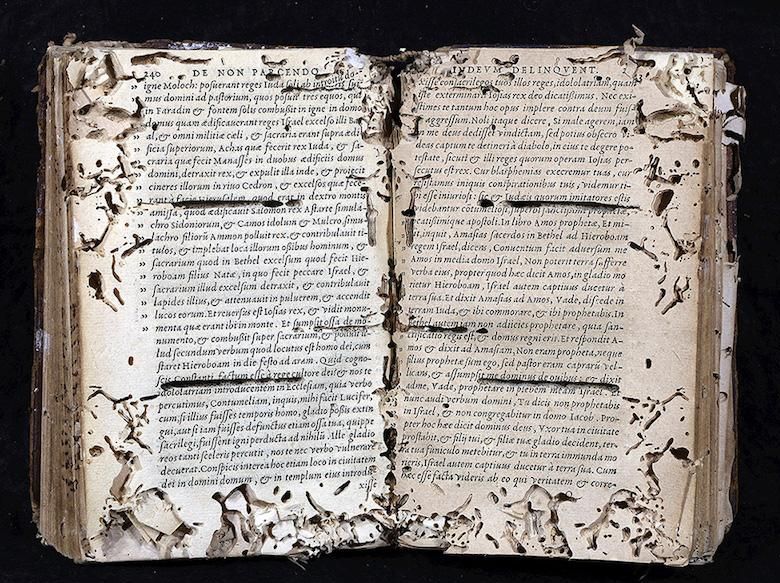 240 DE NON PARCENDO
igne Moloch: posuerant reges Iuda soli ab introitu
„ mus domini ad pastorium, quos posuit tres equos, qui
„ in Faradin & fontem solis combussit in igne in domo
domus quam ædificauerant reges Israel excelso illi Ba-
„ al, & omni militiæ cæli, & sacraria erant supra ædi
„ ficia superiorum, Achas quæ fecerit rex Iuda, & sa-
„ craria quæ fecit Manasses in duobus ædificiis domus
„ domini, detraxit rex, & expulit illa inde, & proiecit
„ cineres illorum in riuo Cedron, & excelsos quæ fece-
„ rant erat in dextro montis
„ amissa, quod ædificauit Salomon rex Astarte simula
„ chro Sidoniorum, & Camos idolum & Mulcro simu-
„ lachro filiorũ Ammon polluit rex, & contribulauit ti
„ tulos, & impleuit loca illorum ossibus hominum, &
„ sacrarium quod in Bethel excelsum quod fecit Hie-
„ roboam filius Natæ, in quo fecit peccare Israel, &
„ sacrarium illud excelsum detraxit, & contribulauit
„ lapides illius, & attenuauit in puluerem, & accendit
„ lucos eorum. Et reuersus est Iosias rex, & vidit monu-
„ menta quæ erant ibi in monte. Et sumpsit ossa de mo-
numento, & combussit super sacrarium, & polluit il-
lud secundum verbum quod locutus est homo dei, cum
staret Hieroboam in die festo ad aram. Quid cogno-
scis Constanti, factum esse à rege cultore dei: & nos te
idololatriam introducentem in Ecclesiam, quia verbo
percutimus, Contumeliam, inquis, mihi facit Lucifer
cum: si illius fuisses temporis homo, gladio possis extin
gui, aut si iam fuisses defunctus etiam ossa tua, quippe
sacrilegi, fuissent igni perducta ad nihilũ. Ille gladio
reos tanti sceleris percutit, nos te nec verbo vulnerare
decuerat. Conspicis interea hoc etiam loco in ciuitatem
dei in domini domum, & in templum eius introis
xisse
IN DEVM DELINQVENT.
xisse con sacrilegos tuos illos reges, idololatriam, quam
iste exterminat: Iosias rex deo dicatissimus. Nec exi-
stimes te tantum hoc opus implere contra deum fuisse
aggressum. Noli itaque dicere, Si male agerem, iam
in me deus dedisset vindictam, sed potius obsecro
deas captum te detineri à diabolo, in eius te degere po-
testate, sicuti & illi reges quorum operam Iosias per-
secutus est rex. Cur blasphemias execremur tuas, cur
resistamus iniquis conspirationibus tuis, videmur ti-
in esse iniuriosi: & Iudæis quorum imitatores estis
videbantur
In libro Amos prophetæ, Et mi-
inquit, Amasias sacerdos in Bethel ad Hieroboam
regem Israel, dicens, Conuentum facit aduersum me
Amos in media domo Israel, Non poterit terra sufferre
verba eius, propter quod hæc dicit Amos, in gladio mo
rietur Hieroboam. Israel autem captiuus ducetur à
terra sua. Et dixit Amasias ad Amos, Vade, discede in
terram Iuda, & ibi commorare, & ibi prophetabis. In
Bethel autem iam non adiicies prophetare, quia san-
ctificatio regis est, & domus regni erit. Et respondit A-
mos & dixit ad Amasiam, Non eram propheta, neque
filius prophetæ sum ego, sed pastor eram capraru vel-
licans, & assumpsit me dominus de ouibus, & dixit
ad me, Vade, prophetare in plebem meam Israel. Et
nunc audi verbum domini, Tu dicis non prophetabis
in Israel, & non congregabitur in domo Iacob. Pro-
pter hoc hæc dicit dominus deus, Vxor tua in ciuitate
prostabit, & filij tui, & filiæ tuæ gladio decident, ter-
ra tua funiculo metebitur, & tu in terra immunda mo
rieris, Israel autem captiuus ducetur à terra sua. Cum
hæc esse facta videris ab eo qui veritatem & corre-